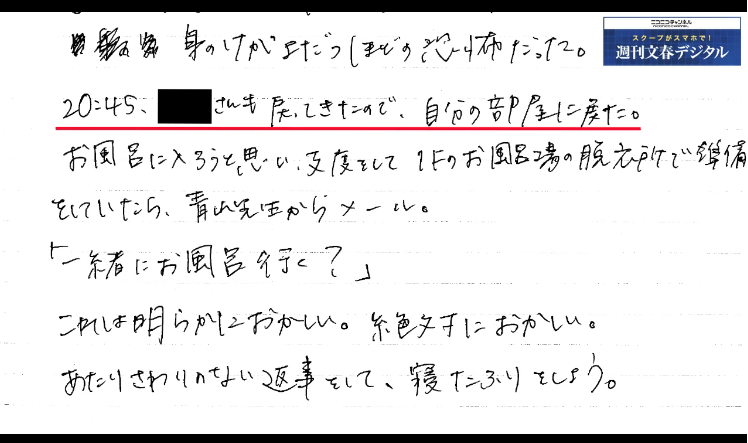 ニコニコチャンネル
スクープがスマホで!
週刊文春デジタル
身のけがよだつほどの恐怖だった。
20:45、さんも戻ってきたので、自分の部屋に戻た。
お風呂に入ろうと思い、支度をして1Fのお風呂場の脱衣所で準備
をしていたら、青山先生からメール。
「一緒にお風呂行く?」
これは明らかにおかしい。絶対におかしい。
あたりさわりのない返事をして、寝たふりをしよう。